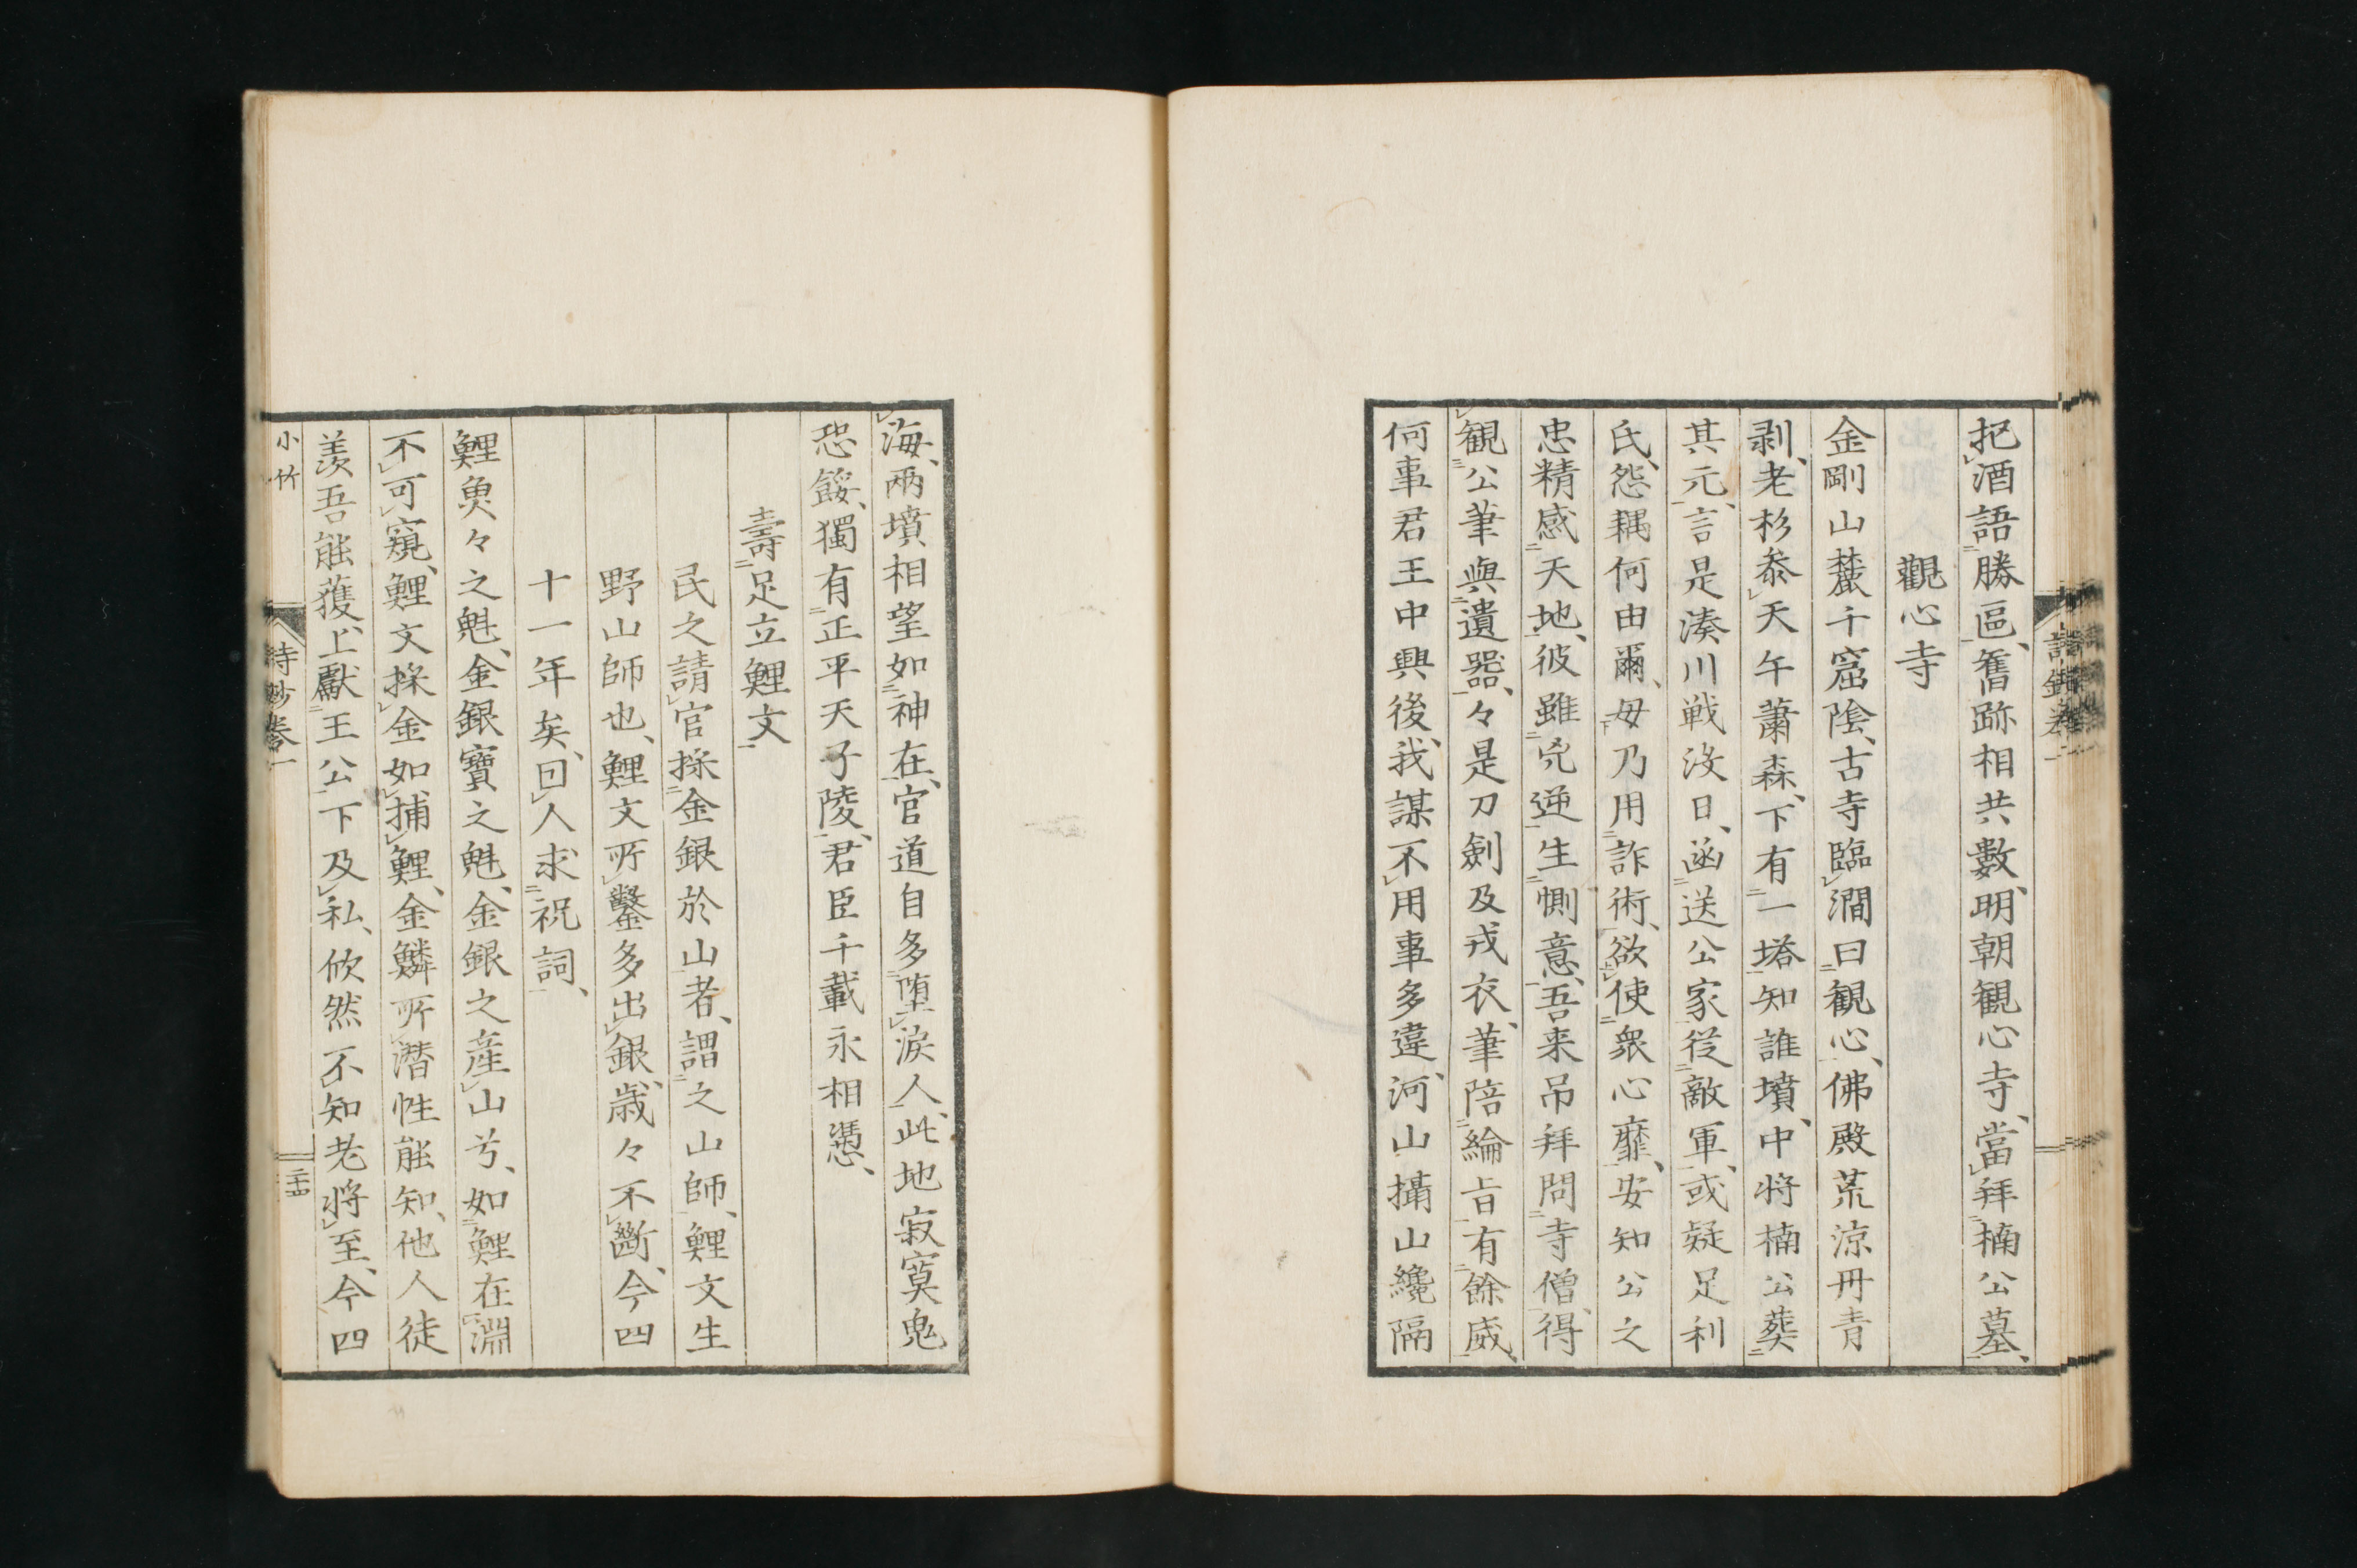 把酒語勝區、舊跡相共數、明朝観心寺、當拜楠公墓、
觀心寺
金剛山麓千窟陰、古寺臨澗曰観心、佛殿荒涼丹青
剥、老杉叅天午蕭森、下有一塔知誰墳、中将楠公葬
其元、言是湊川戦没日、函送公家従敵軍、或疑足利
氏、怨耦何由爾、毋乃用詐術、欲使衆心靡、安知公之
忠精感天地、彼雖兇逆生惻意、吾来吊拜問寺僧、得
観公筆與遺器、々是刀劍及戎衣、筆陪綸旨有餘威、
何事君王中興後、我謀不用事多違、河山攝山纔隔
海、兩墳相望如神在、官道自多堕涙人、此地寂寞鬼
恐餒、獨有正平天子陵、君臣千載永相憑、
壽足立鯉文
民之請官採金銀於山者、謂之山師、鯉文生
野山師也、鯉文所鑿多出銀、歳々不斷、今四
十一年矣、回人求祝詞、
鯉魚々之魁、金銀寶之魁、金銀之産山兮、如鯉在淵
不可窺、鯉文採金如捕鯉、金鱗所潜性能知、他人徒
羨吾能獲、上獻王公下及私、欣然不知老将至、今四
小竹
詩鈔卷一
二十四